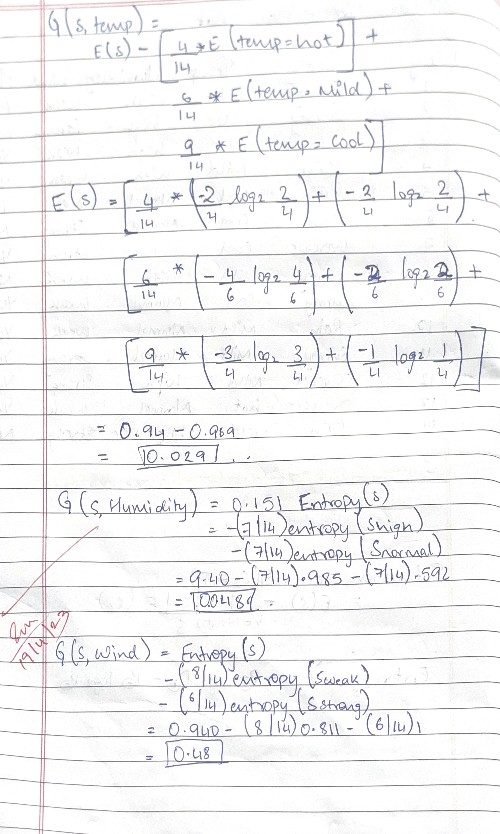 G(s, temp) =
E(s) - [4/14 * E (temp = hot] +
6/14 * E (temp = Mild) +
9/14 * E (temp = Cool)]
E(s) = [4/14 * (-2/4 log2 2/4) + (-2/4 log2 2/4) +
[6/14 * (-4/6 log2 4/6) + (-2/6 log2 2/6) +
[9/14 * (-3/4 log2 3/4) + (-1/4 log2 1/4)]
= 0.94 - 0.969
= 10.0291 ..
G(S, Humidity) = 0.151 Entropy(s)
= -(7/14) entropy (Shigh)
-(7/14) entropy (Snormal)
= 9.40 - (7/14).985 - (7/14).592
= 10.0481
19/4/23
G(S, Wind) = Entropy(S)
-(8/14) entropy (Sweak)
-(6/14) entropy (S strong)
= 0.940 - (8/14) 0.811 - (6/14) 1
= 0.48